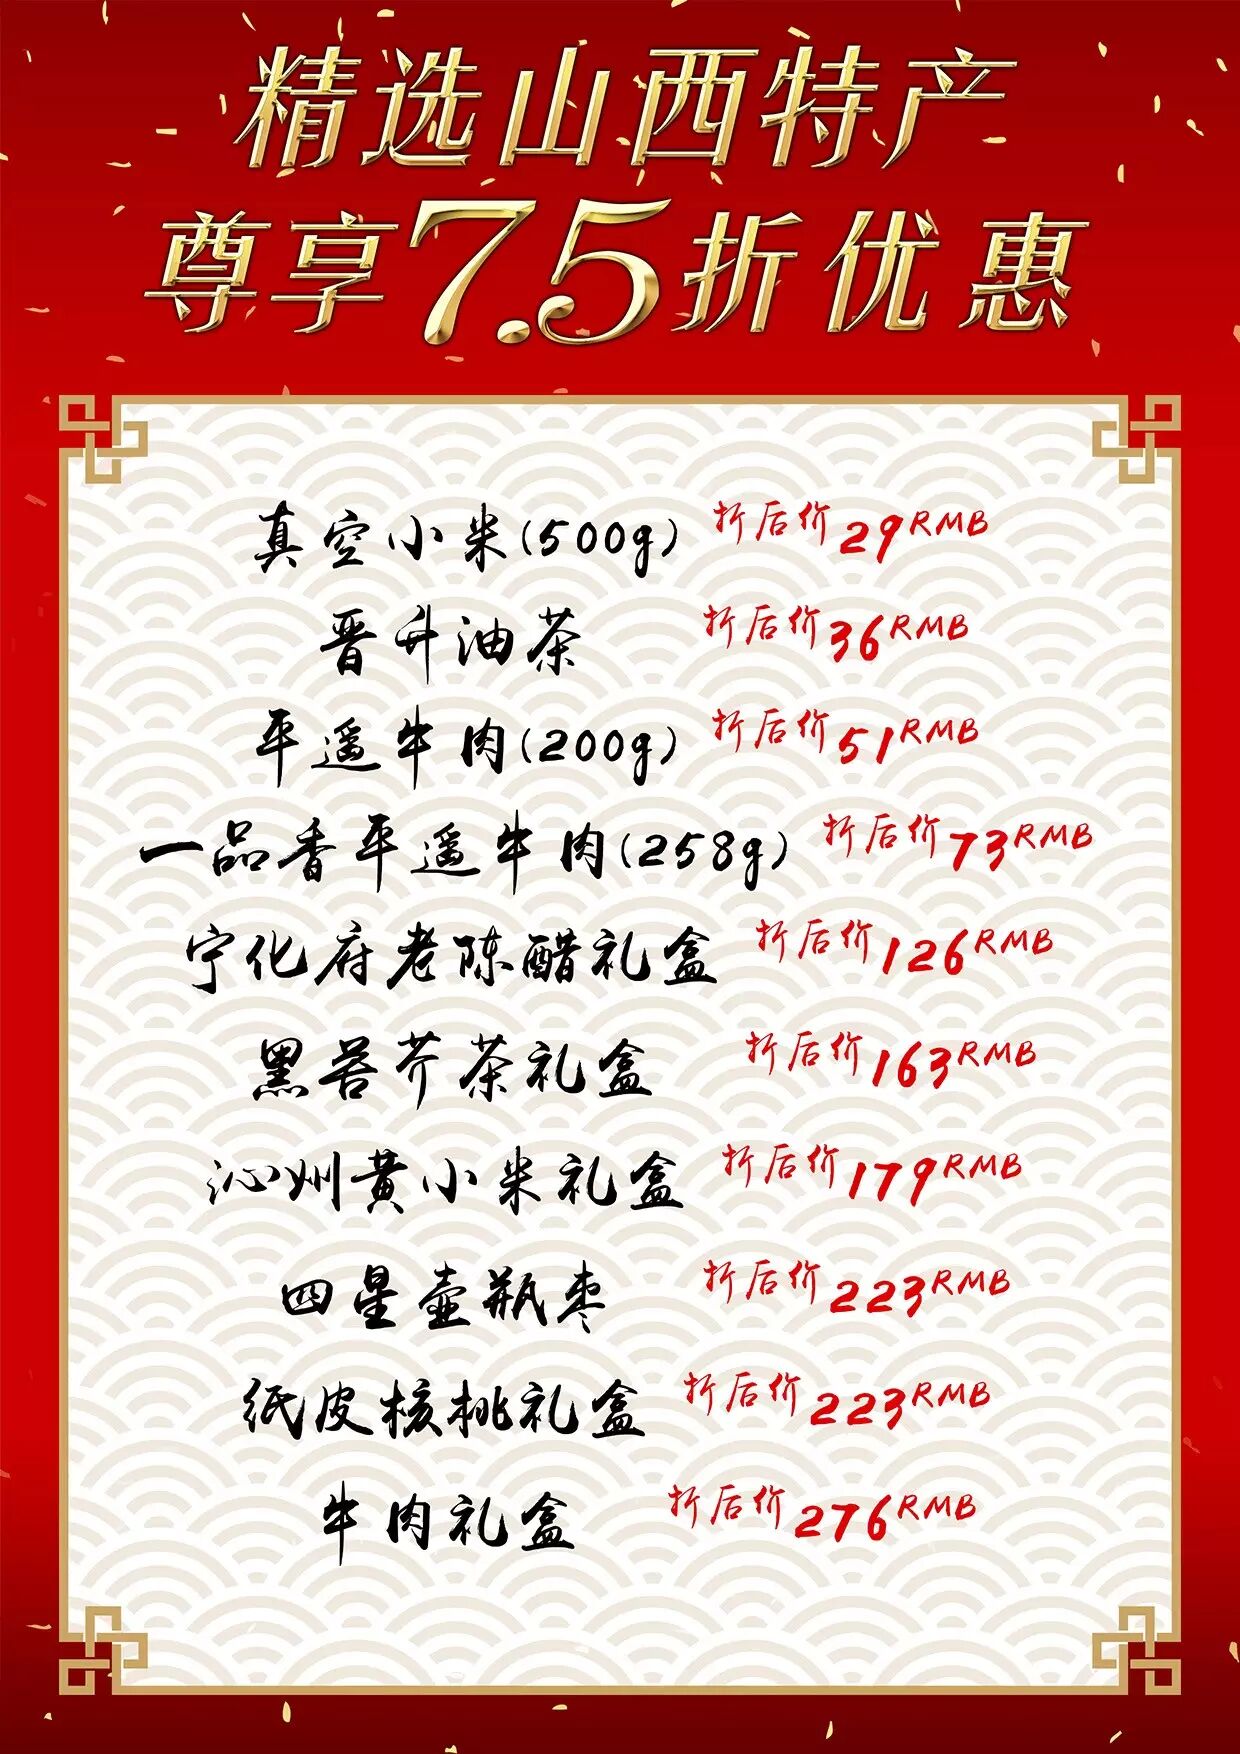 精选山西特产
尊享7.5折优惠
真空小米(500g) 折后价29RMB
晋升油茶 折后价36RMB
平遥牛肉(200g) 折后价51RMB
一品香平遥牛肉(258g) 折后价73RMB
宁化府老陈醋礼盒 折后价126RMB
黑苦芥茶礼盒 折后价163RMB
沁州黄小米礼盒 折后价179RMB
四星壶瓶枣 折后价223RMB
纸皮核桃礼盒 折后价223RMB
牛肉礼盒 折后价276RMB